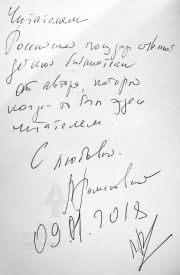 Читателям
Российской государственной
детской библиотеки
от автора, который
когда-то был здесь
читателем.
С любовью.
2018